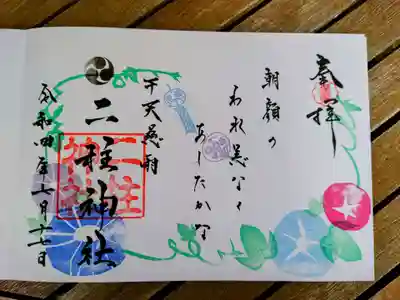 奉拝
朝顔の
われ恙なく
あしたかな
干天慈雨
二柱神社
二柱神社
令和四年七月十七日